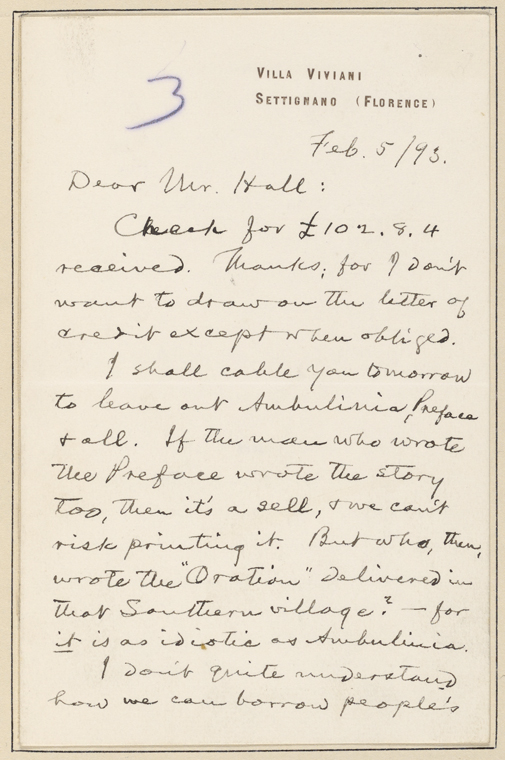 3
VILLA VIVIANI
SETTIGNANO (FLORENCE)
Feb. 5/93.
Dear Mr. Hall:
Check for £102.8.4
received. Thanks; for I don't
want to draw on the letter of
credit except when obliged.
I shall cable you tomorrow
to leave out Ambulinia, Preface
& all. If the man who wrote
the Preface wrote the story
too, then it's a sell, & we can't
risk printing it. But who, then,
wrote the "Oration" delivered in
that Southern village? — for
it is as idiotic as Ambulinia.
I don't quite understand
how we can borrow people's